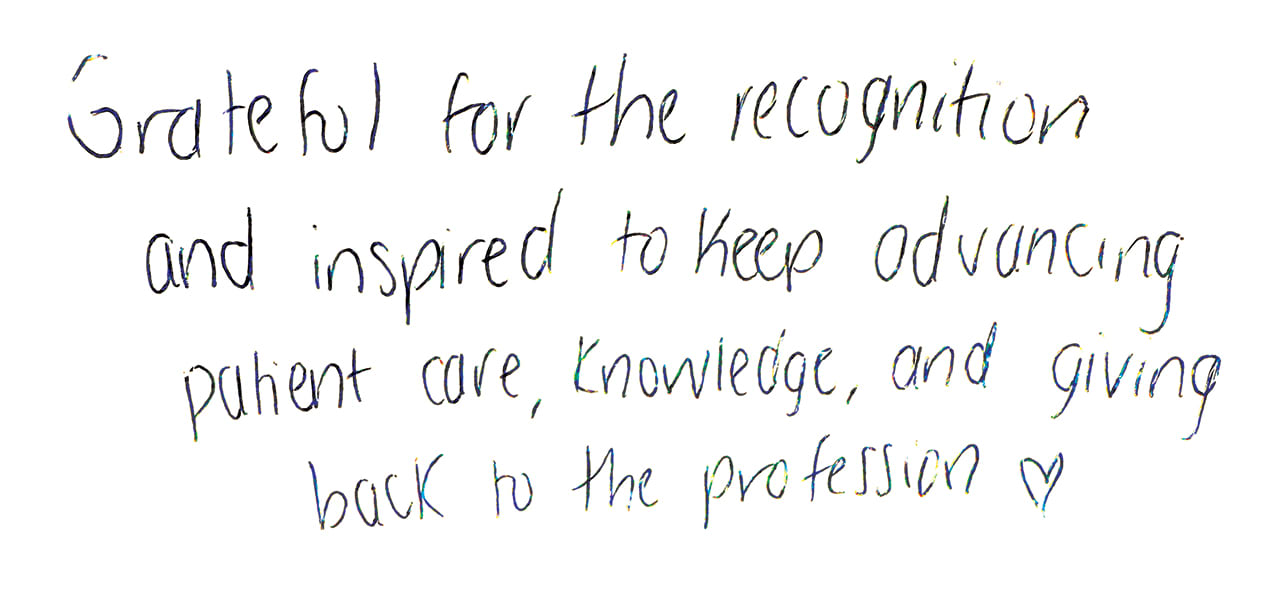 Grateful for the recognition
and inspired to keep advancing
patient care, knowledge, and giving
back to the profession ♡